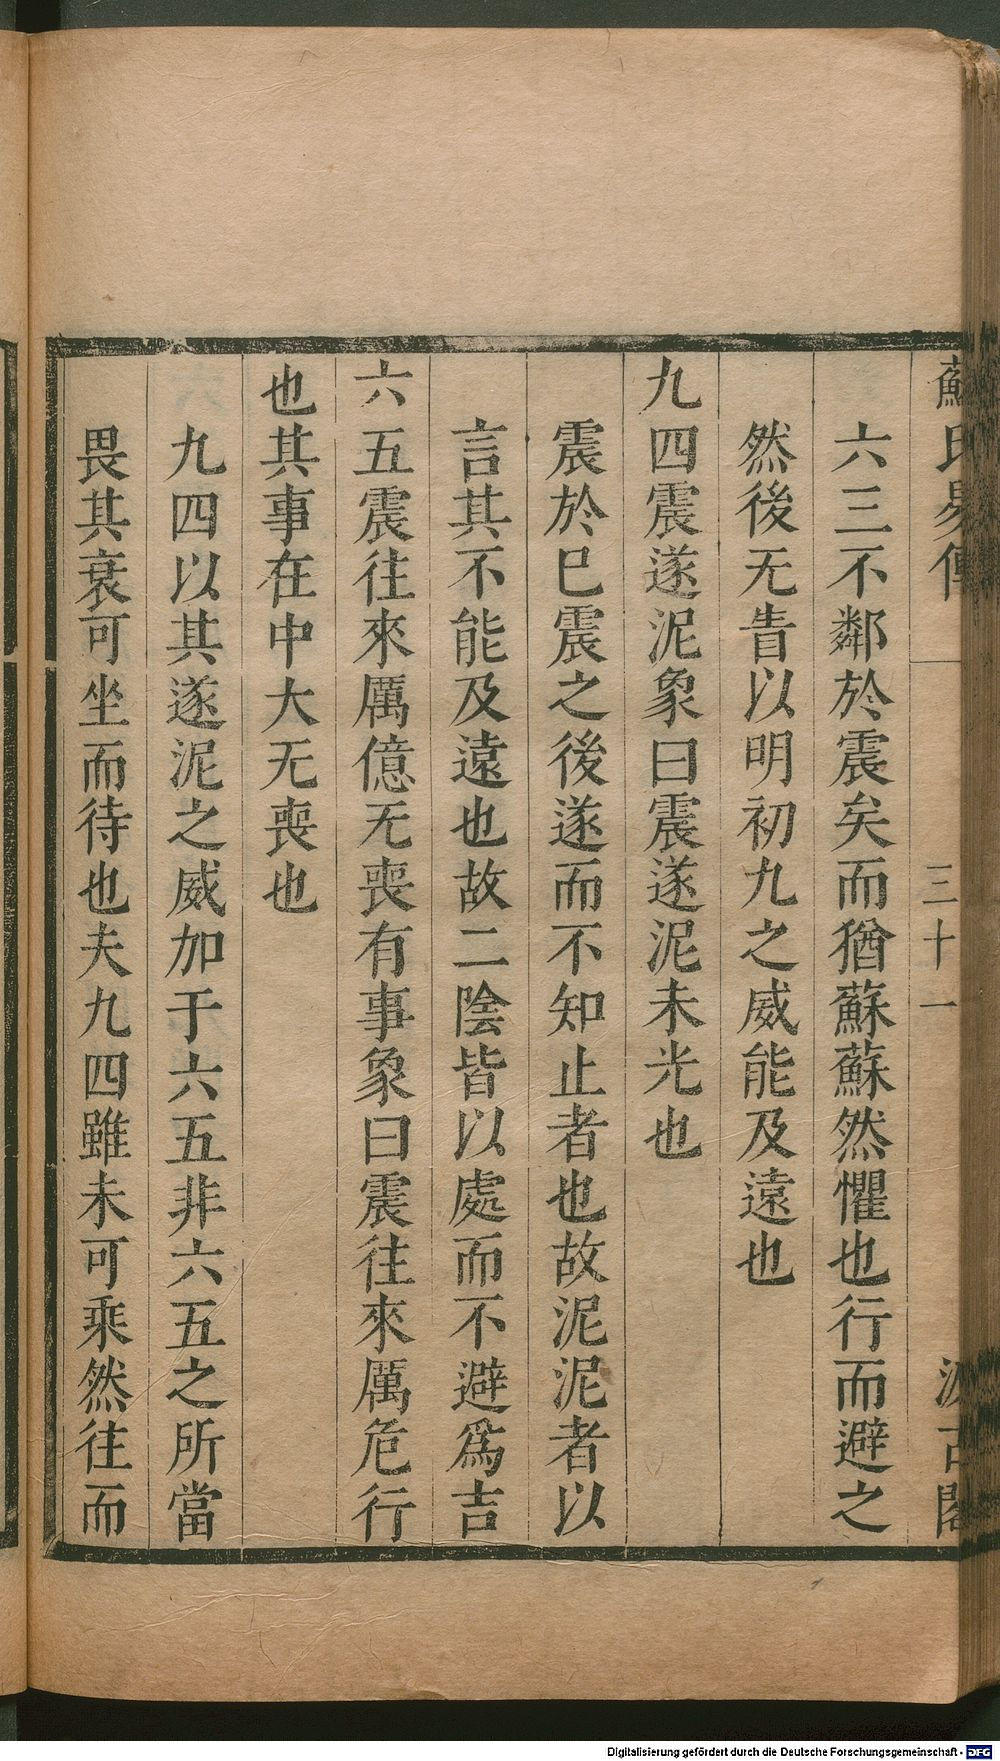 蘇氏易傳 三十一 汲古閣
六三不鄰於震矣而猶蘇蘇然懼也行而避之
然後无眚以明初九之威能及遠也
九四震遂泥象曰震遂泥未光也
震於巳震之後遂而不知止者也故泥泥者以
言其不能及遠也故二陰皆以處而不避爲吉
六五震往來厲億无喪有事象曰震往來厲危行
也其事在中大无喪也
九四以其遂泥之威加于六五非六五之所當
畏其衰可坐而待也夫九四雖未可乘然往而
Digitalisierung gefördert durch die Deutsche Forschungsgemeinschaft - DFG